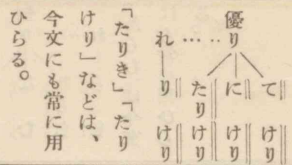 優り……れ
て けり
に けり
たり けり
り けり
「たりき」「たり
けり」などは、
今文にも常に用
ひらる。